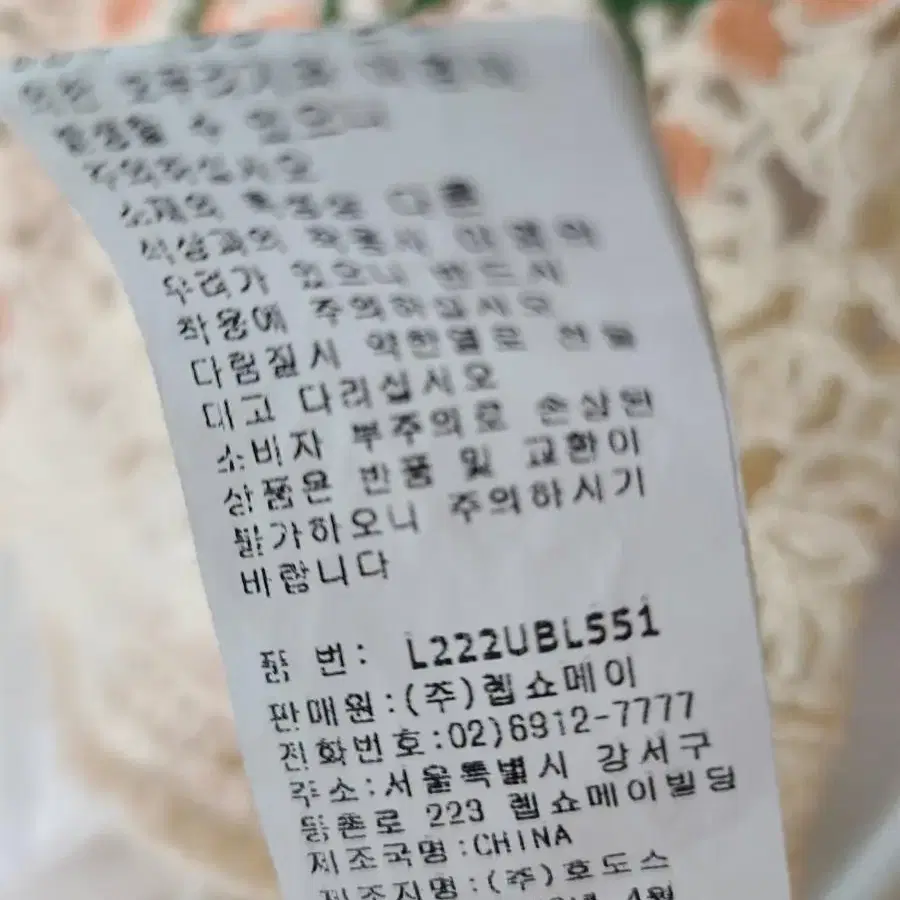 발생할 수 있으니
주의하십시오
소재의 특성상 다른
색상과의 착용시 이염의
우려가 있으니 반드시
착용에 주의하십시오
다림질시 약한열로 천을
대고 다리십시오
소비자 부주의로 손상된
상품은 반품 및 교환이
불가하오니 주의하시기
바랍니다
품 번: L222UBL551
판매원:(주)렙쇼메이
전화번호:02)6912-7777
주소:서울특별시 강서구
등촌로 223 렙쇼메이빌딩
제조국명:CHINA
제조자명:(주)호도스
4월